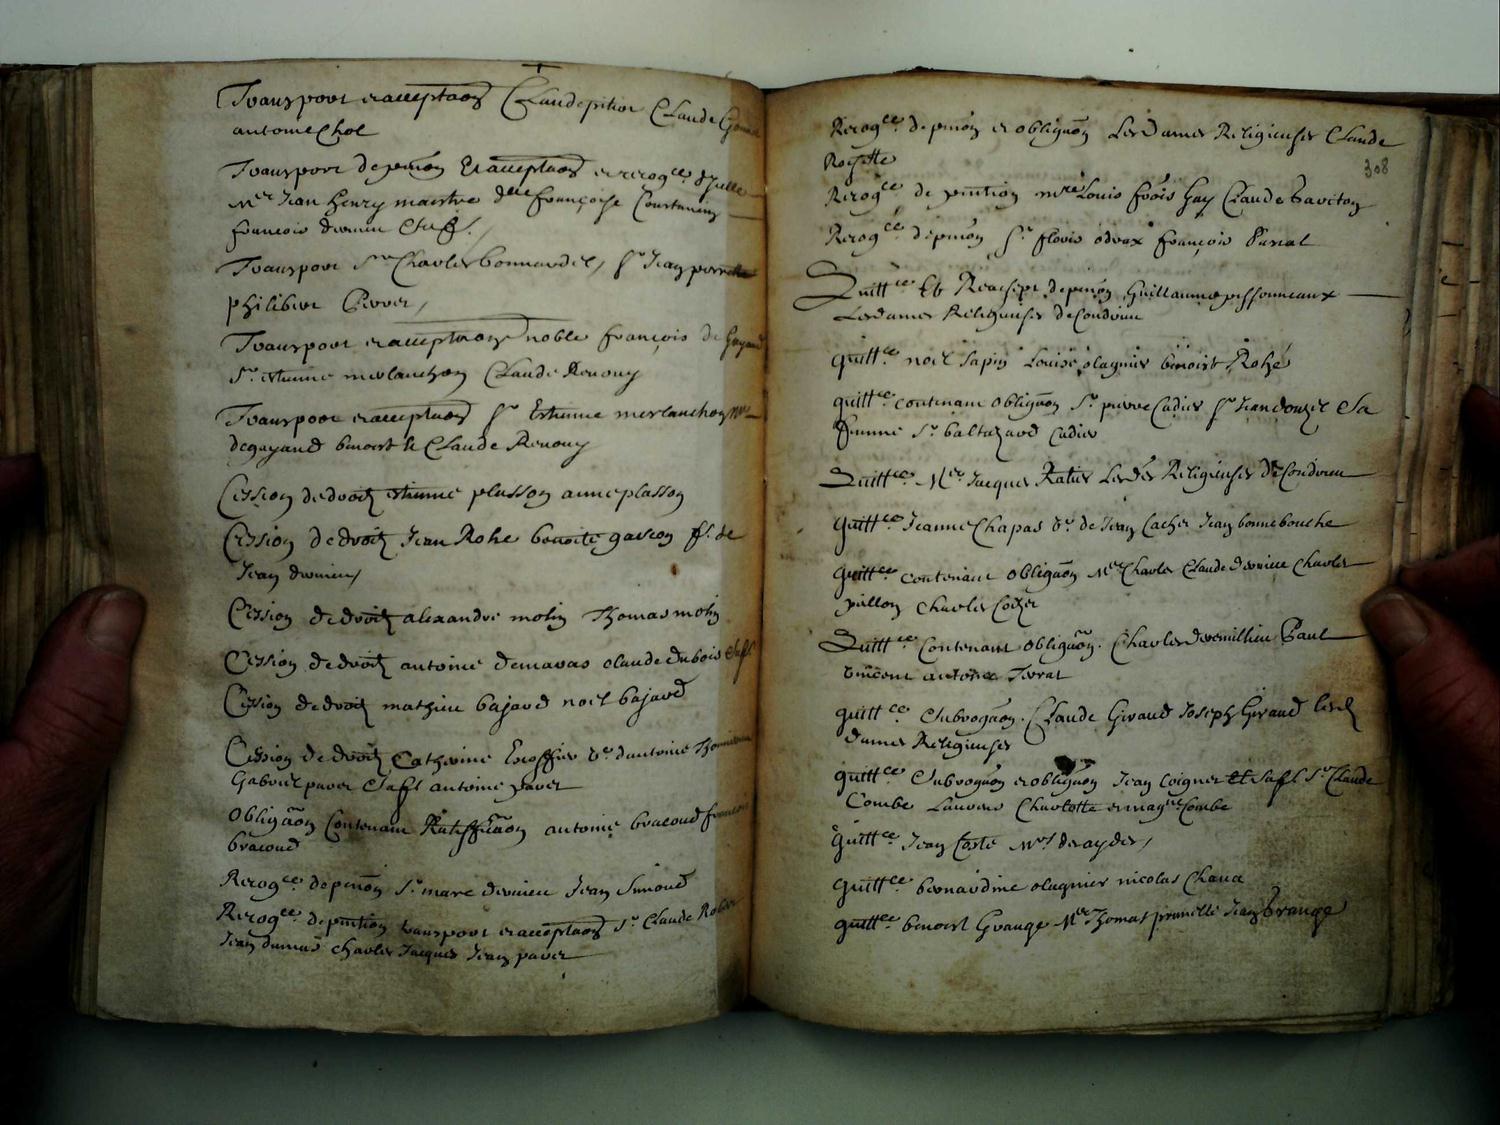 Transport et acceptaõn Claude pitior Claude
antoine Chol
Transport de pnõn Et acceptaõn et recog.ce
Mer Jean henry maistre dlle françoise Constantin
francois dervieu &
Transport Sr Charles bonnardel, Sr Jean
philibert Perrer,
Transport et acceptaõn noble francois de
Sr estienne merlanchon Claude Renouy
Transport et acceptaõn Sr Estienne merlanchon
degayand benoist & Claude Renouy
Cession de droit estienne plasson anne plasson
Cession de droit Jean Rohe benoite gascon f. de
Jean dervieu,
Cession de droit alexandre molin Thomas molin
Cession de droit antoine demaras claude dubois
Cession de droit mathieu bajard noel bajard
Cession de droit Catherine ve d'antoine
Gabriel paver & sa fl antoine paver
Obligaõn Contenant Ratifficaõn antoine bracoud francois
bracoud
Recog.ce de pnõn Sr marc dervieu Jean Simond
Recog.ce de pention transport et acceptaõn Sr Claude Rober
Jean dumas charles Jacques Jean paver
Recog.ce de pnõn et obligaõn Les Dames Religieuses Claude
Rosette
308
Recog.ce de pention mre Louis frõis Gay Claude bariton
Recog.ce de pnõn Sr floris odoux françois Parrat
Quitt.ce & Rescript de pnõn Guillaume pissonneaux
Les dames Religieuses de Condrieu
quitt.ce noel Sapin Louise olagnier benoist Rohé
quitt.ce contenant obligaõn Sr pierre Cadier Sr Jean donzel Sa
femme Sr baltazard Cadier
Quitt.ce Mer Jacques Ratier Les des Religieuses de Condrieu
quitt.ce Jeanne Chapas ve de Jean Cacher Jean bonnebouche
quitt.ce contenant obligaõn Mer Charles Claude dervieu Charles
pillon Charles
Quitt.ce Contenant obligaõn. Charles devermillieu Paul
vincent antoine Terrat
quitt.ce Subrogaõn. Claude Giraud Joseph Giraud
dames Religieuses
quitt.ce Subrogaõn et obligaõn Jean Coignet et sa fl Sr Claude
Combe Laurens Charlotte et magne Combe
quitt.ce Jean Coste Mrs
quitt.ce bernardine olagnier nicolas Chana
quitt.ce benoist Grange Mer Thomas prunelle Jean Grange